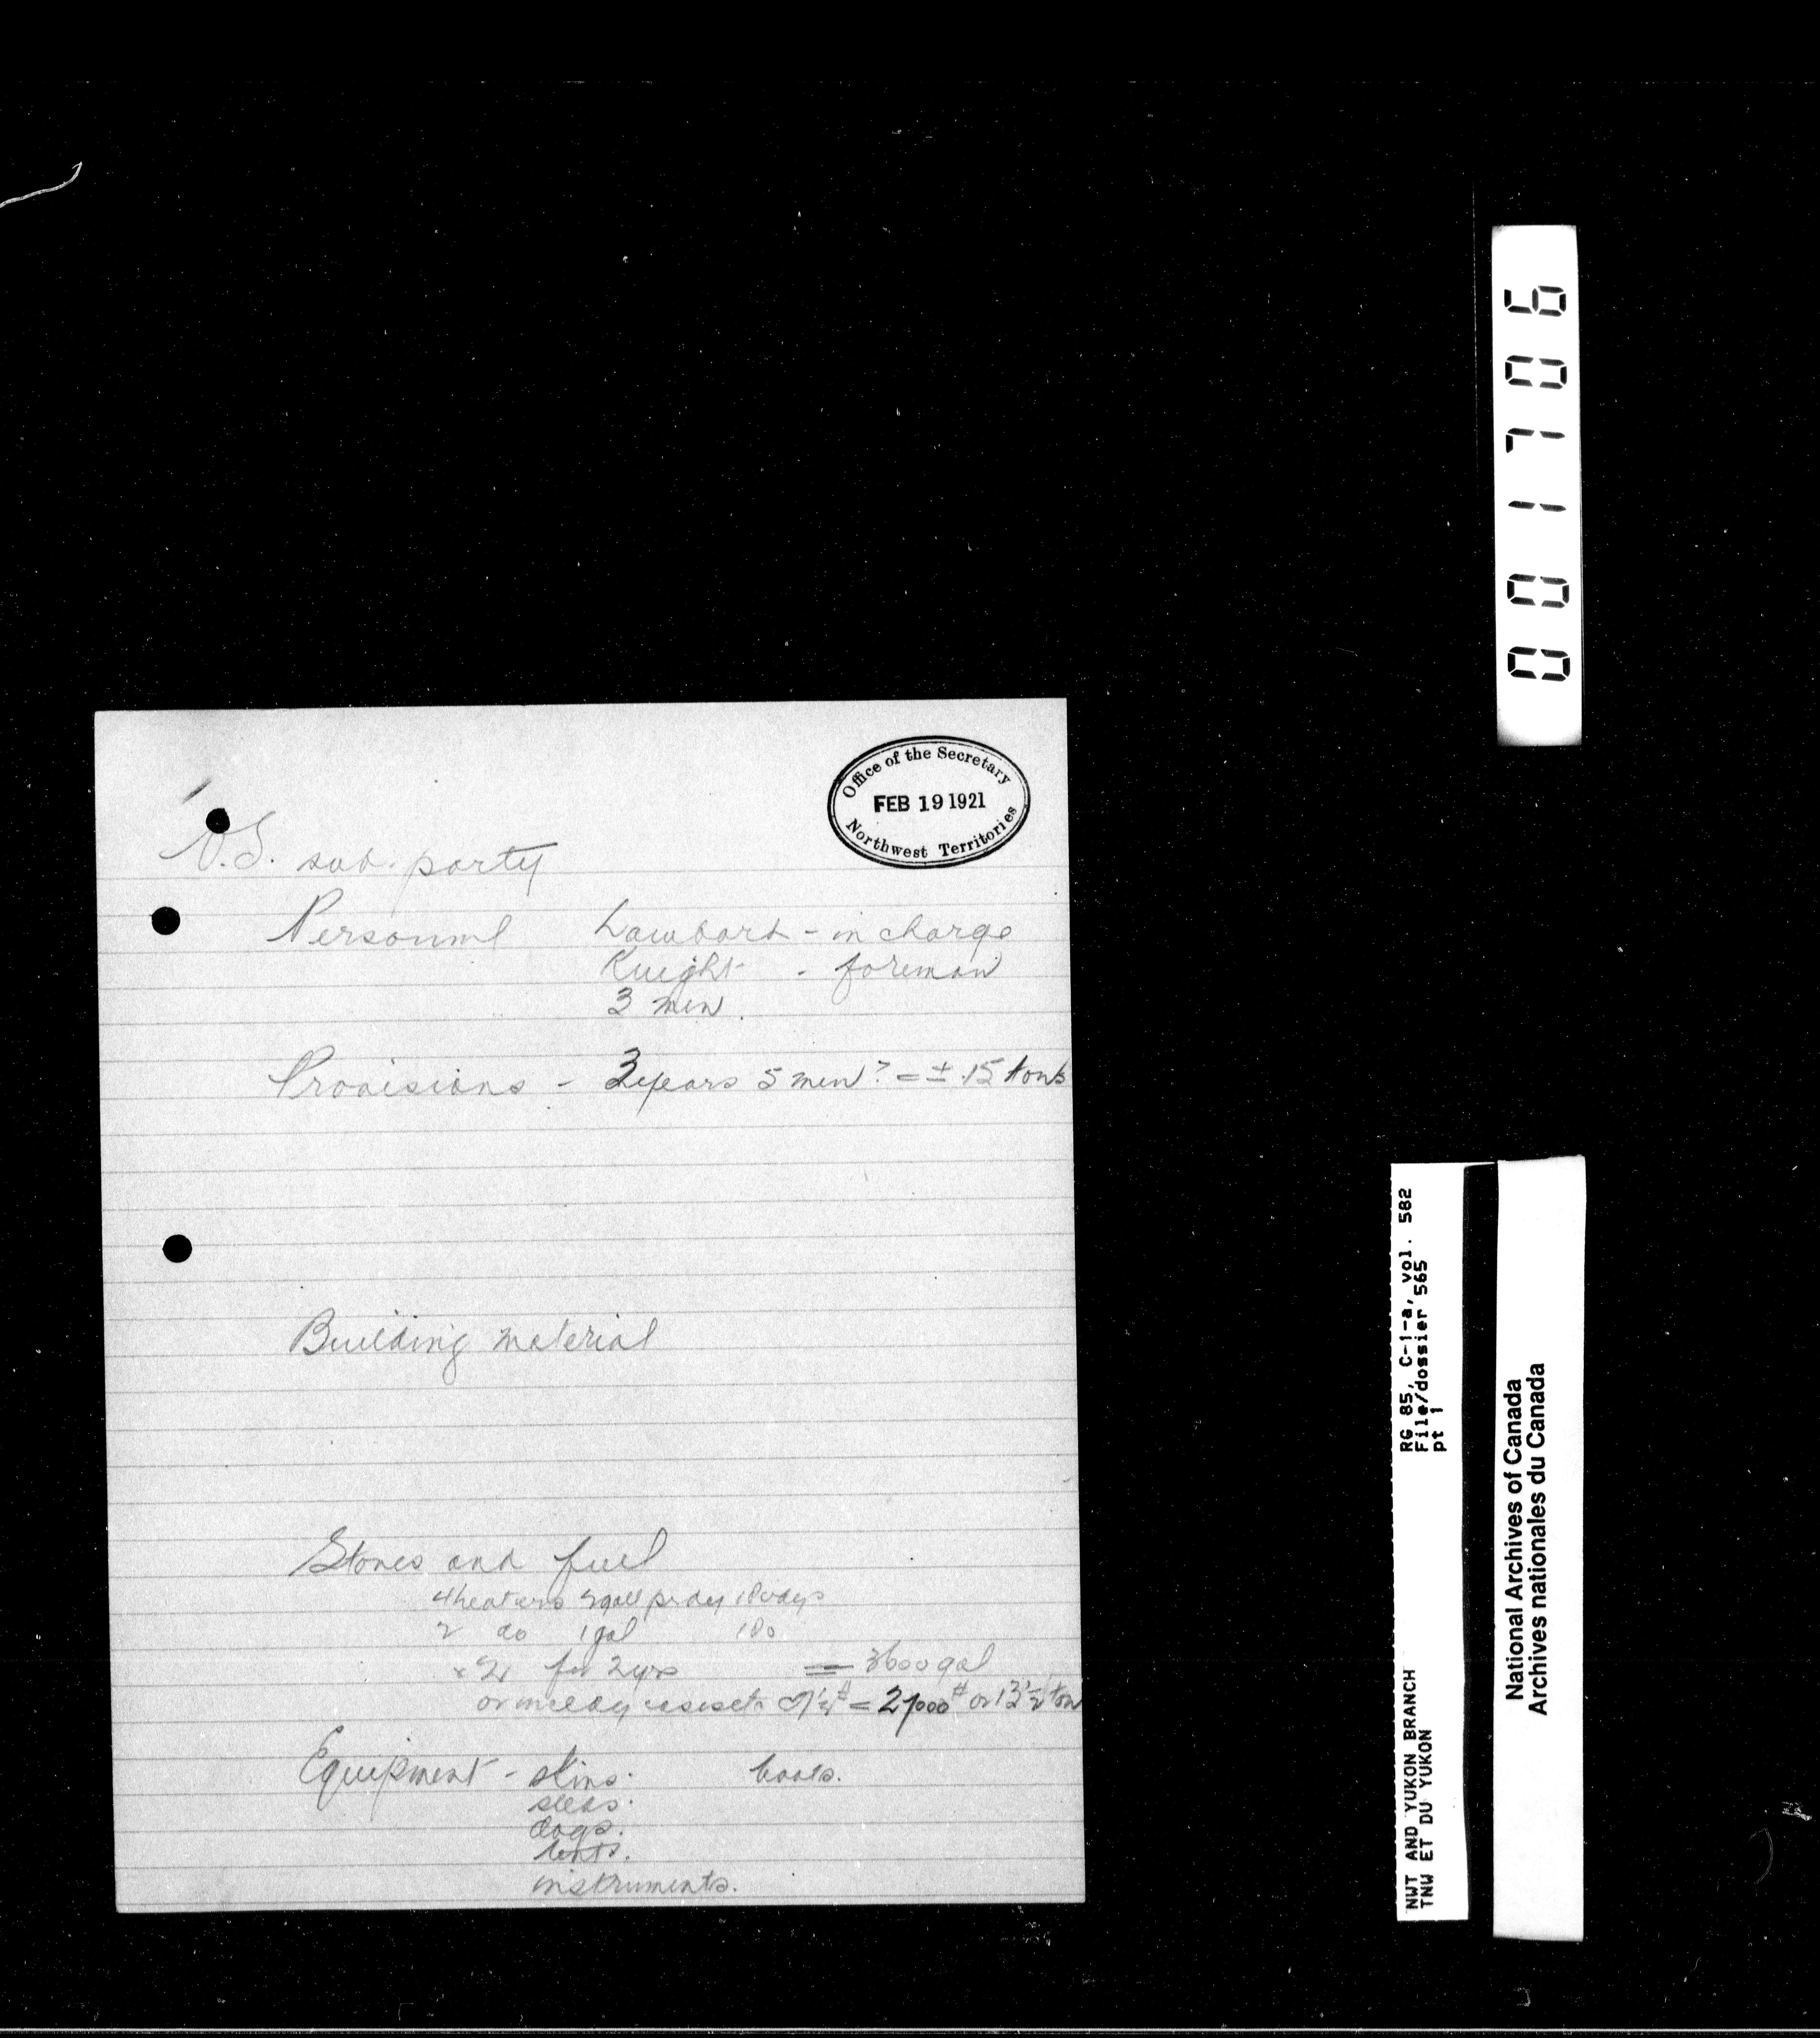 Office of the Secretary
FEB 19 1921
Northwest Territories
sub. party
Personnel Lambart - in charge
Knight - foreman
3 men.
Provisions - 3 years 5 men? = ± 15 tons
Building material
Stoves and fuel
4 heaters 2 gall pr day 180 days
2 do 1 gal 180
x 2 for 2 yrs = 3600 gal
or @ 7½# = 27000# or 13½ ton
Equipment - skins. boats.
sleds.
dogs.
tents.
instruments.
001706
RG 85, C-1-a, vol. 582
File/dossier 565
pt 1
NWT AND YUKON BRANCH
TNW ET DU YUKON
National Archives of Canada
Archives nationales du Canada